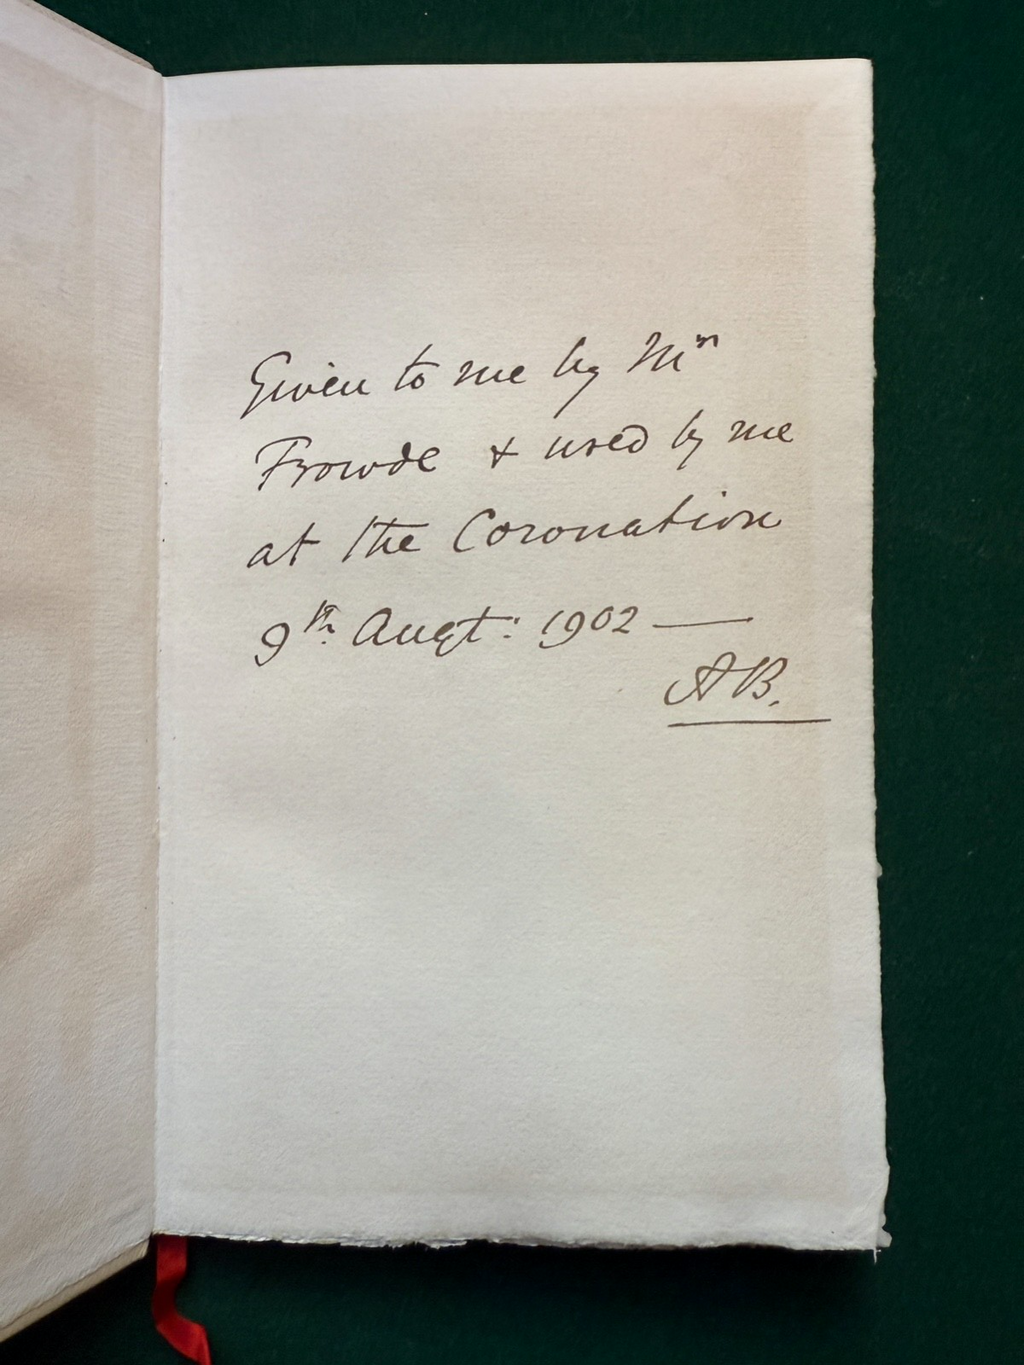 Given to me by Mr
Frowde & used by me
at the Coronation
9th Augt: 1902 —
AB.